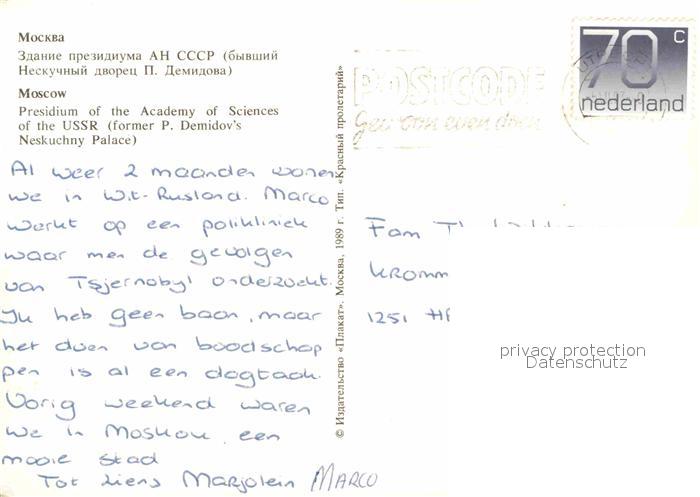 Москва
Здание президиума АН СССР (бывший
Нескучный дворец П. Демидова)
Moscow
Presidium of the Academy of Sciences
of the USSR (former P. Demidov's
Neskuchny Palace)
Al weer 2 maanden wonen
we in Wit-Rusland. Marco
werkt op een polikliniek
waar men de gevolgen
van Tsjernobyl onderzoekt.
Ik heb geen baan, maar
het doen van boodschap
pen is al een dagtaak.
Vorig weekend waren
we in Moskou, een
mooie stad
Tot ziens Marjolein MARCO
© Издательство «Плакат». Москва, 1989 г. Тип. «Красный пролетарий»
POSTCODE
70 c
nederland
Fam
Kromm
1251 
privacy protection
Datenschutz